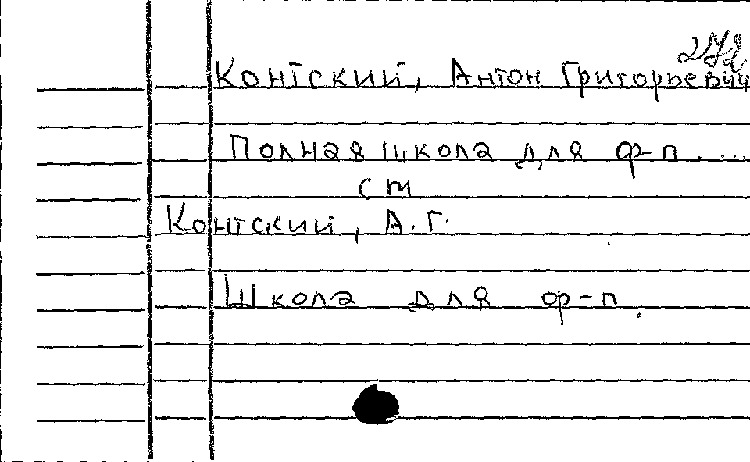 272
Контский, Антон Григорьевич
Полная школа для ф-п. ...
см
Контский, А. Г.
Школа для ф-п.